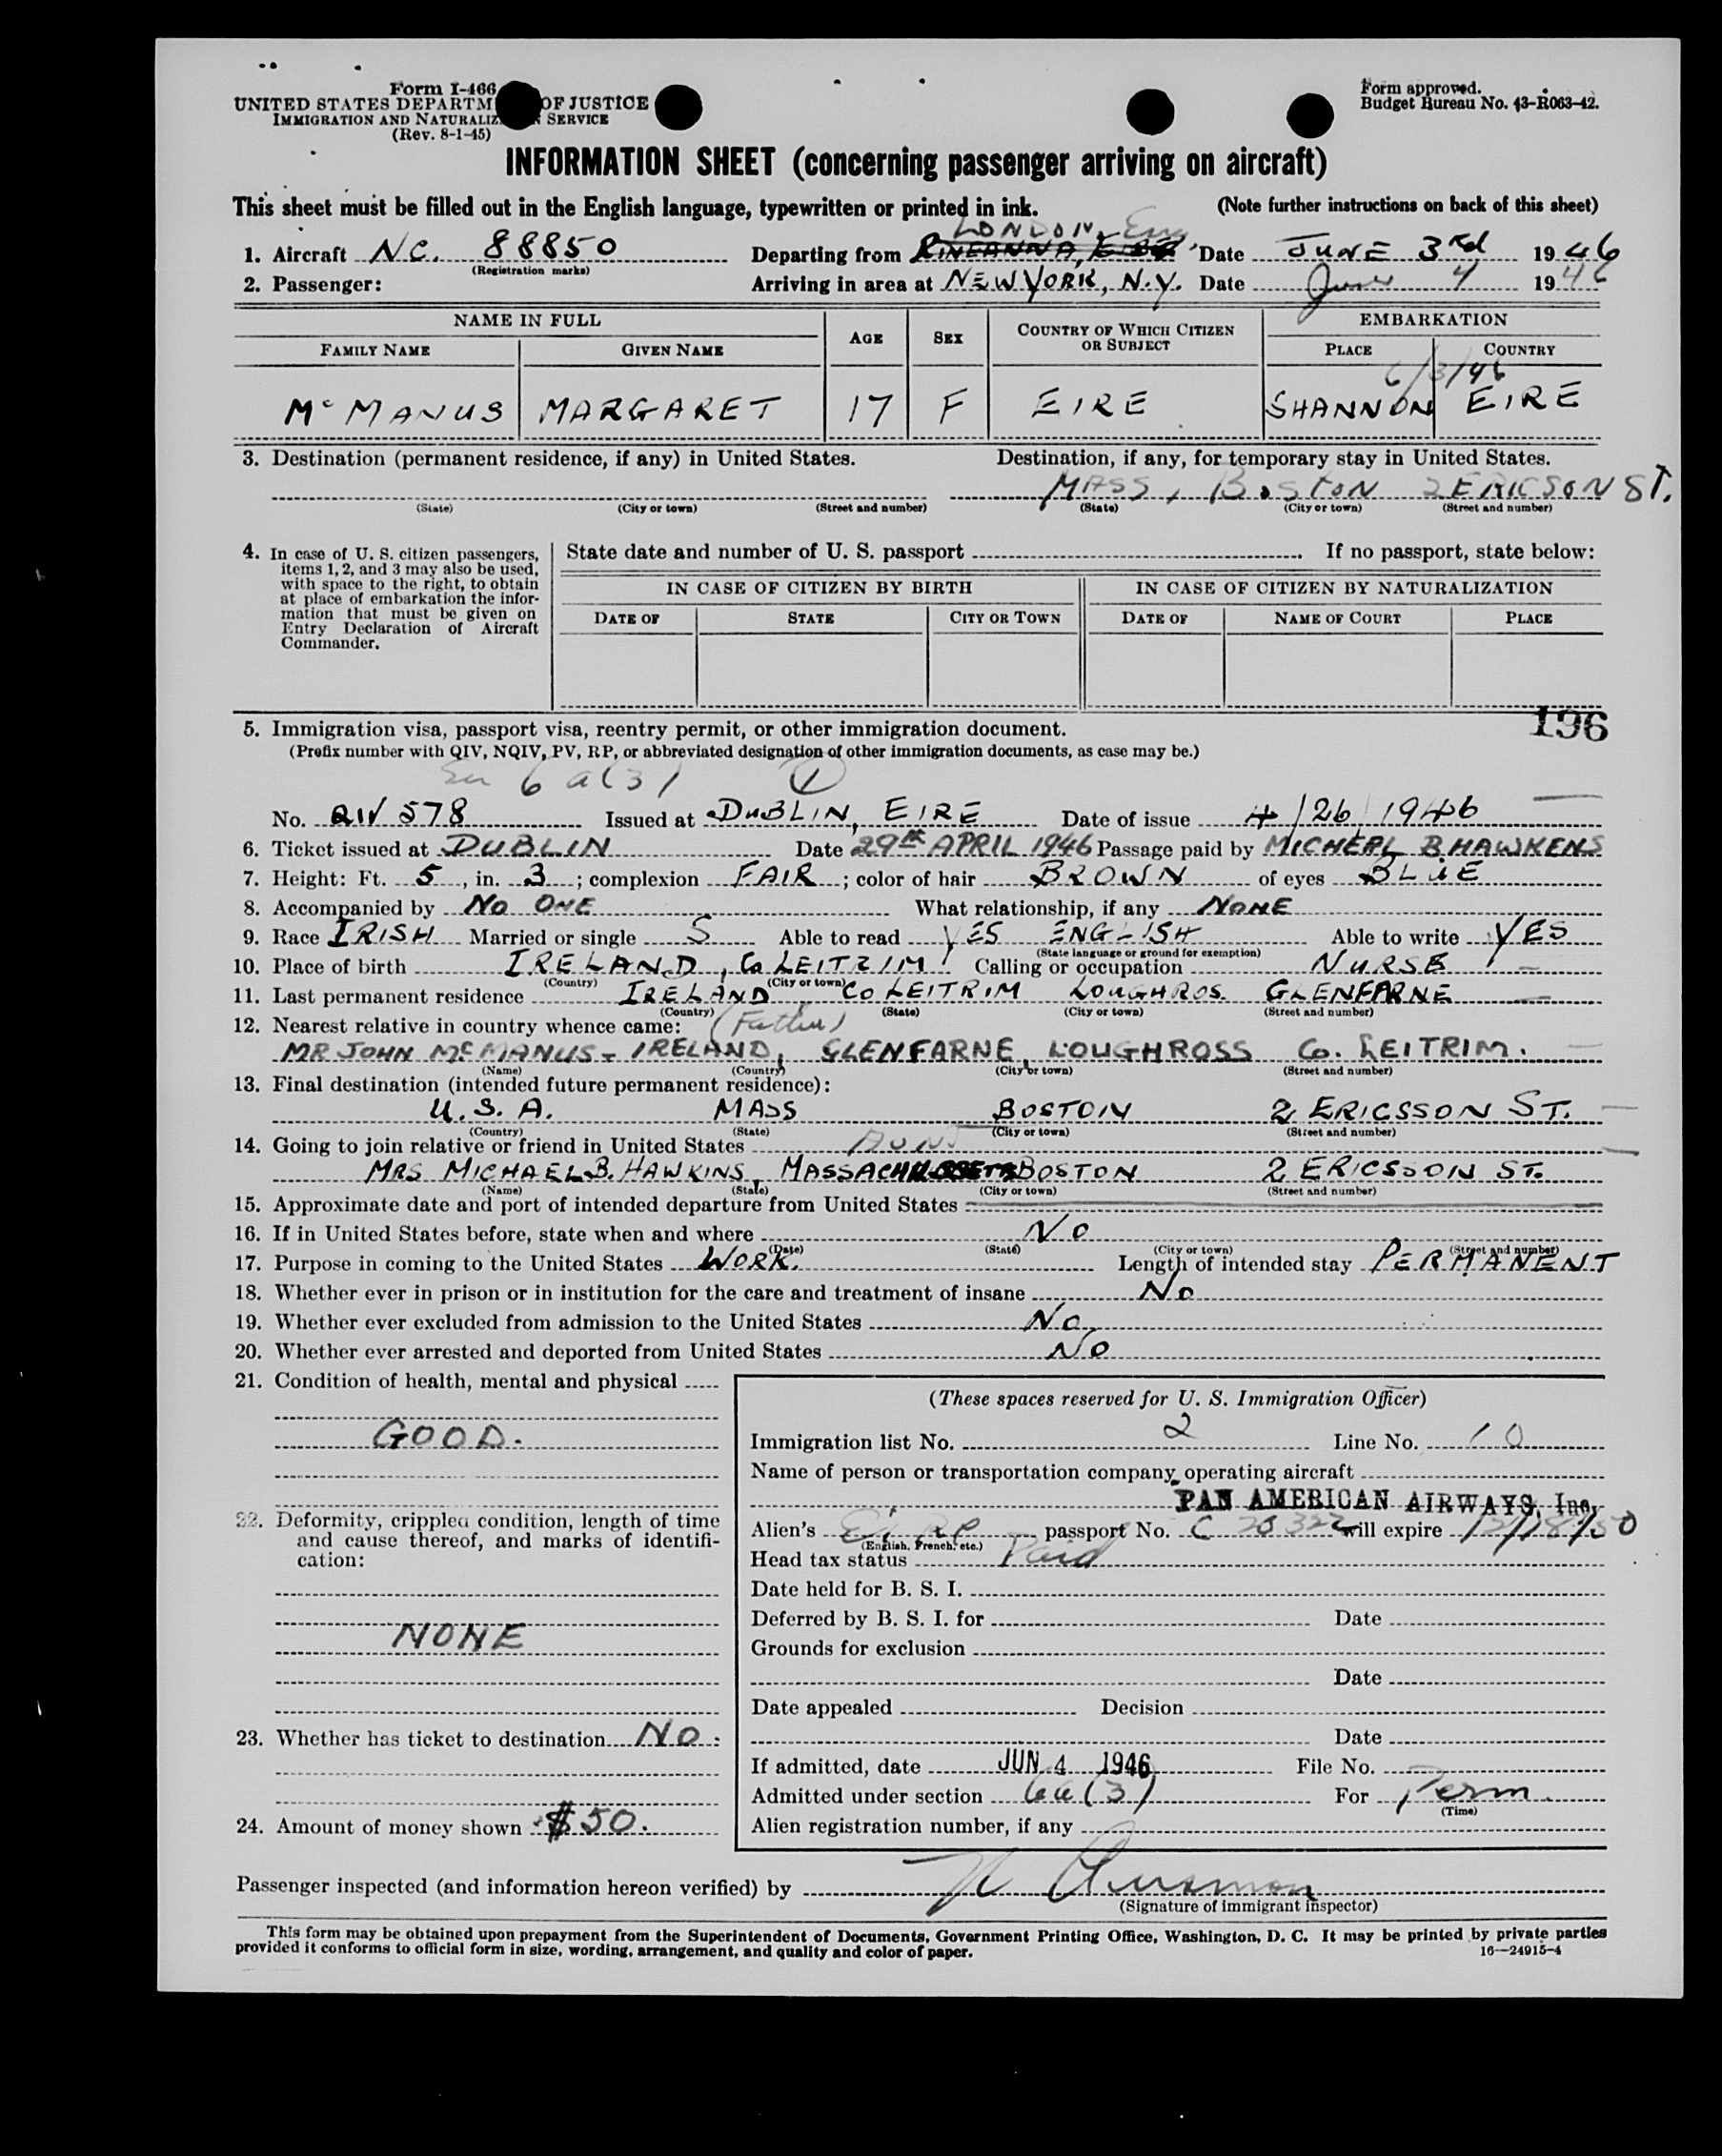 Form I-466
UNITED STATES DEPARTM OF JUSTICE
IMMIGRATION AND NATURALIZ N SERVICE
(Rev. 8-1-45)
Form approved.
Budget Bureau No. 43-R063-42.
INFORMATION SHEET (concerning passenger arriving on aircraft)
This sheet must be filled out in the English language, typewritten or printed in ink. (Note further instructions on back of this sheet)
LONDON, Eng
1. Aircraft NC. 88850 Departing from RINEANNA, EIRE, Date JUNE 3rd 1946
(Registration marks)
2. Passenger: Arriving in area at NEW YORK, N.Y. Date June 4 1946
NAME IN FULL AGE SEX COUNTRY OF WHICH CITIZEN OR SUBJECT EMBARKATION
FAMILY NAME GIVEN NAME PLACE COUNTRY
6/3/46
McMANUS MARGARET 17 F EIRE SHANNON EIRE
3. Destination (permanent residence, if any) in United States. Destination, if any, for temporary stay in United States.
MASS, BOSTON 2 ERICSON ST.
(State) (City or town) (Street and number) (State) (City or town) (Street and number)
4. In case of U. S. citizen passengers, items 1, 2, and 3 may also be used, with space to the right, to obtain at place of embarkation the information that must be given on Entry Declaration of Aircraft Commander.
State date and number of U. S. passport . If no passport, state below:
IN CASE OF CITIZEN BY BIRTH IN CASE OF CITIZEN BY NATURALIZATION
DATE OF STATE CITY OR TOWN DATE OF NAME OF COURT PLACE
196
5. Immigration visa, passport visa, reentry permit, or other immigration document.
(Prefix number with QIV, NQIV, PV, RP, or abbreviated designation of other immigration documents, as case may be.)
6 a (3) 1
No. QIV 578 Issued at DUBLIN, EIRE Date of issue 4/26/1946
6. Ticket issued at DUBLIN Date 29th APRIL 1946 Passage paid by MICHEAL B HAWKENS
7. Height: Ft. 5, in. 3; complexion FAIR; color of hair BROWN of eyes BLUE
8. Accompanied by NO ONE What relationship, if any NONE
9. Race IRISH Married or single S Able to read YES ENGLISH Able to write YES
(State language or ground for exemption)
10. Place of birth IRELAND, Co LEITRIM Calling or occupation NURSE
(Country) (City or town)
11. Last permanent residence IRELAND Co LEITRIM LOUGHROS. GLENFARNE
(Country) (State) (City or town) (Street and number)
12. Nearest relative in country whence came: (Father)
MR JOHN McMANUS - IRELAND, GLENFARNE, LOUGHROSS Co. LEITRIM.
(Name) (Country) (City or town) (Street and number)
13. Final destination (intended future permanent residence):
U.S.A. MASS BOSTON 2 ERICSSON ST.
(Country) (State) (City or town) (Street and number)
14. Going to join relative or friend in United States AUNT
MRS MICHAEL B. HAWKINS, MASSACHUSSETS BOSTON 2 ERICSSON ST.
(Name) (State) (City or town) (Street and number)
15. Approximate date and port of intended departure from United States
16. If in United States before, state when and where NO
(Date) (State) (City or town) (Street and number)
17. Purpose in coming to the United States WORK. Length of intended stay PERMANENT
18. Whether ever in prison or in institution for the care and treatment of insane No
19. Whether ever excluded from admission to the United States No
20. Whether ever arrested and deported from United States No
21. Condition of health, mental and physical
GOOD.
22. Deformity, crippled condition, length of time and cause thereof, and marks of identification:
NONE
23. Whether has ticket to destination NO.
24. Amount of money shown $50.
(These spaces reserved for U. S. Immigration Officer)
Immigration list No. 2 Line No. 10
Name of person or transportation company operating aircraft
PAN AMERICAN AIRWAYS, Inc.
Alien's Ei RP passport No. C 20322 will expire 12/18/50
(English, French, etc.)
Head tax status Paid
Date held for B. S. I.
Deferred by B. S. I. for Date
Grounds for exclusion
Date
Date appealed Decision
Date
If admitted, date JUN 4 1946 File No.
Admitted under section 6a(3) For Perm.
(Time)
Alien registration number, if any
Passenger inspected (and information hereon verified) by
(Signature of immigrant inspector)
This form may be obtained upon prepayment from the Superintendent of Documents, Government Printing Office, Washington, D. C. It may be printed by private parties
provided it conforms to official form in size, wording, arrangement, and quality and color of paper. 16—24915-4